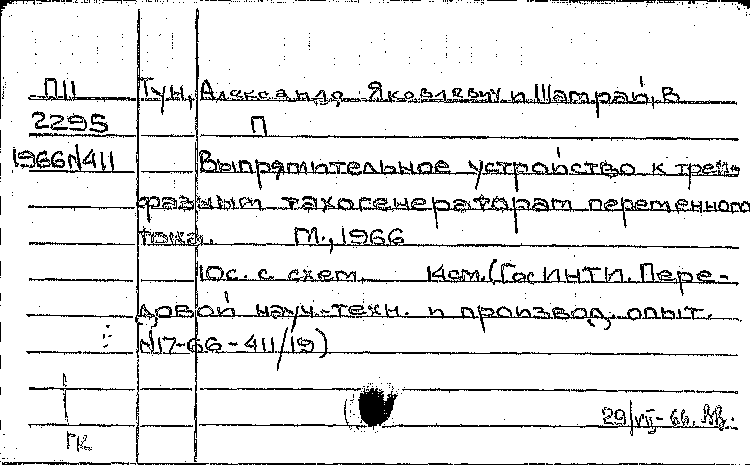 П11 Тун, Александр Яковлевич и Шатрай, В
2295 П
1966N411 Выпрямительное устройство к трех-
фазным тахогенераторам переменного
тока. М., 1966
10с. с схем. 14см. (ГосИНТИ. Пере-
довой науч.-техн. и производ. опыт.
N17-66-411/19)
29/VII-66. ВВ.
ГК